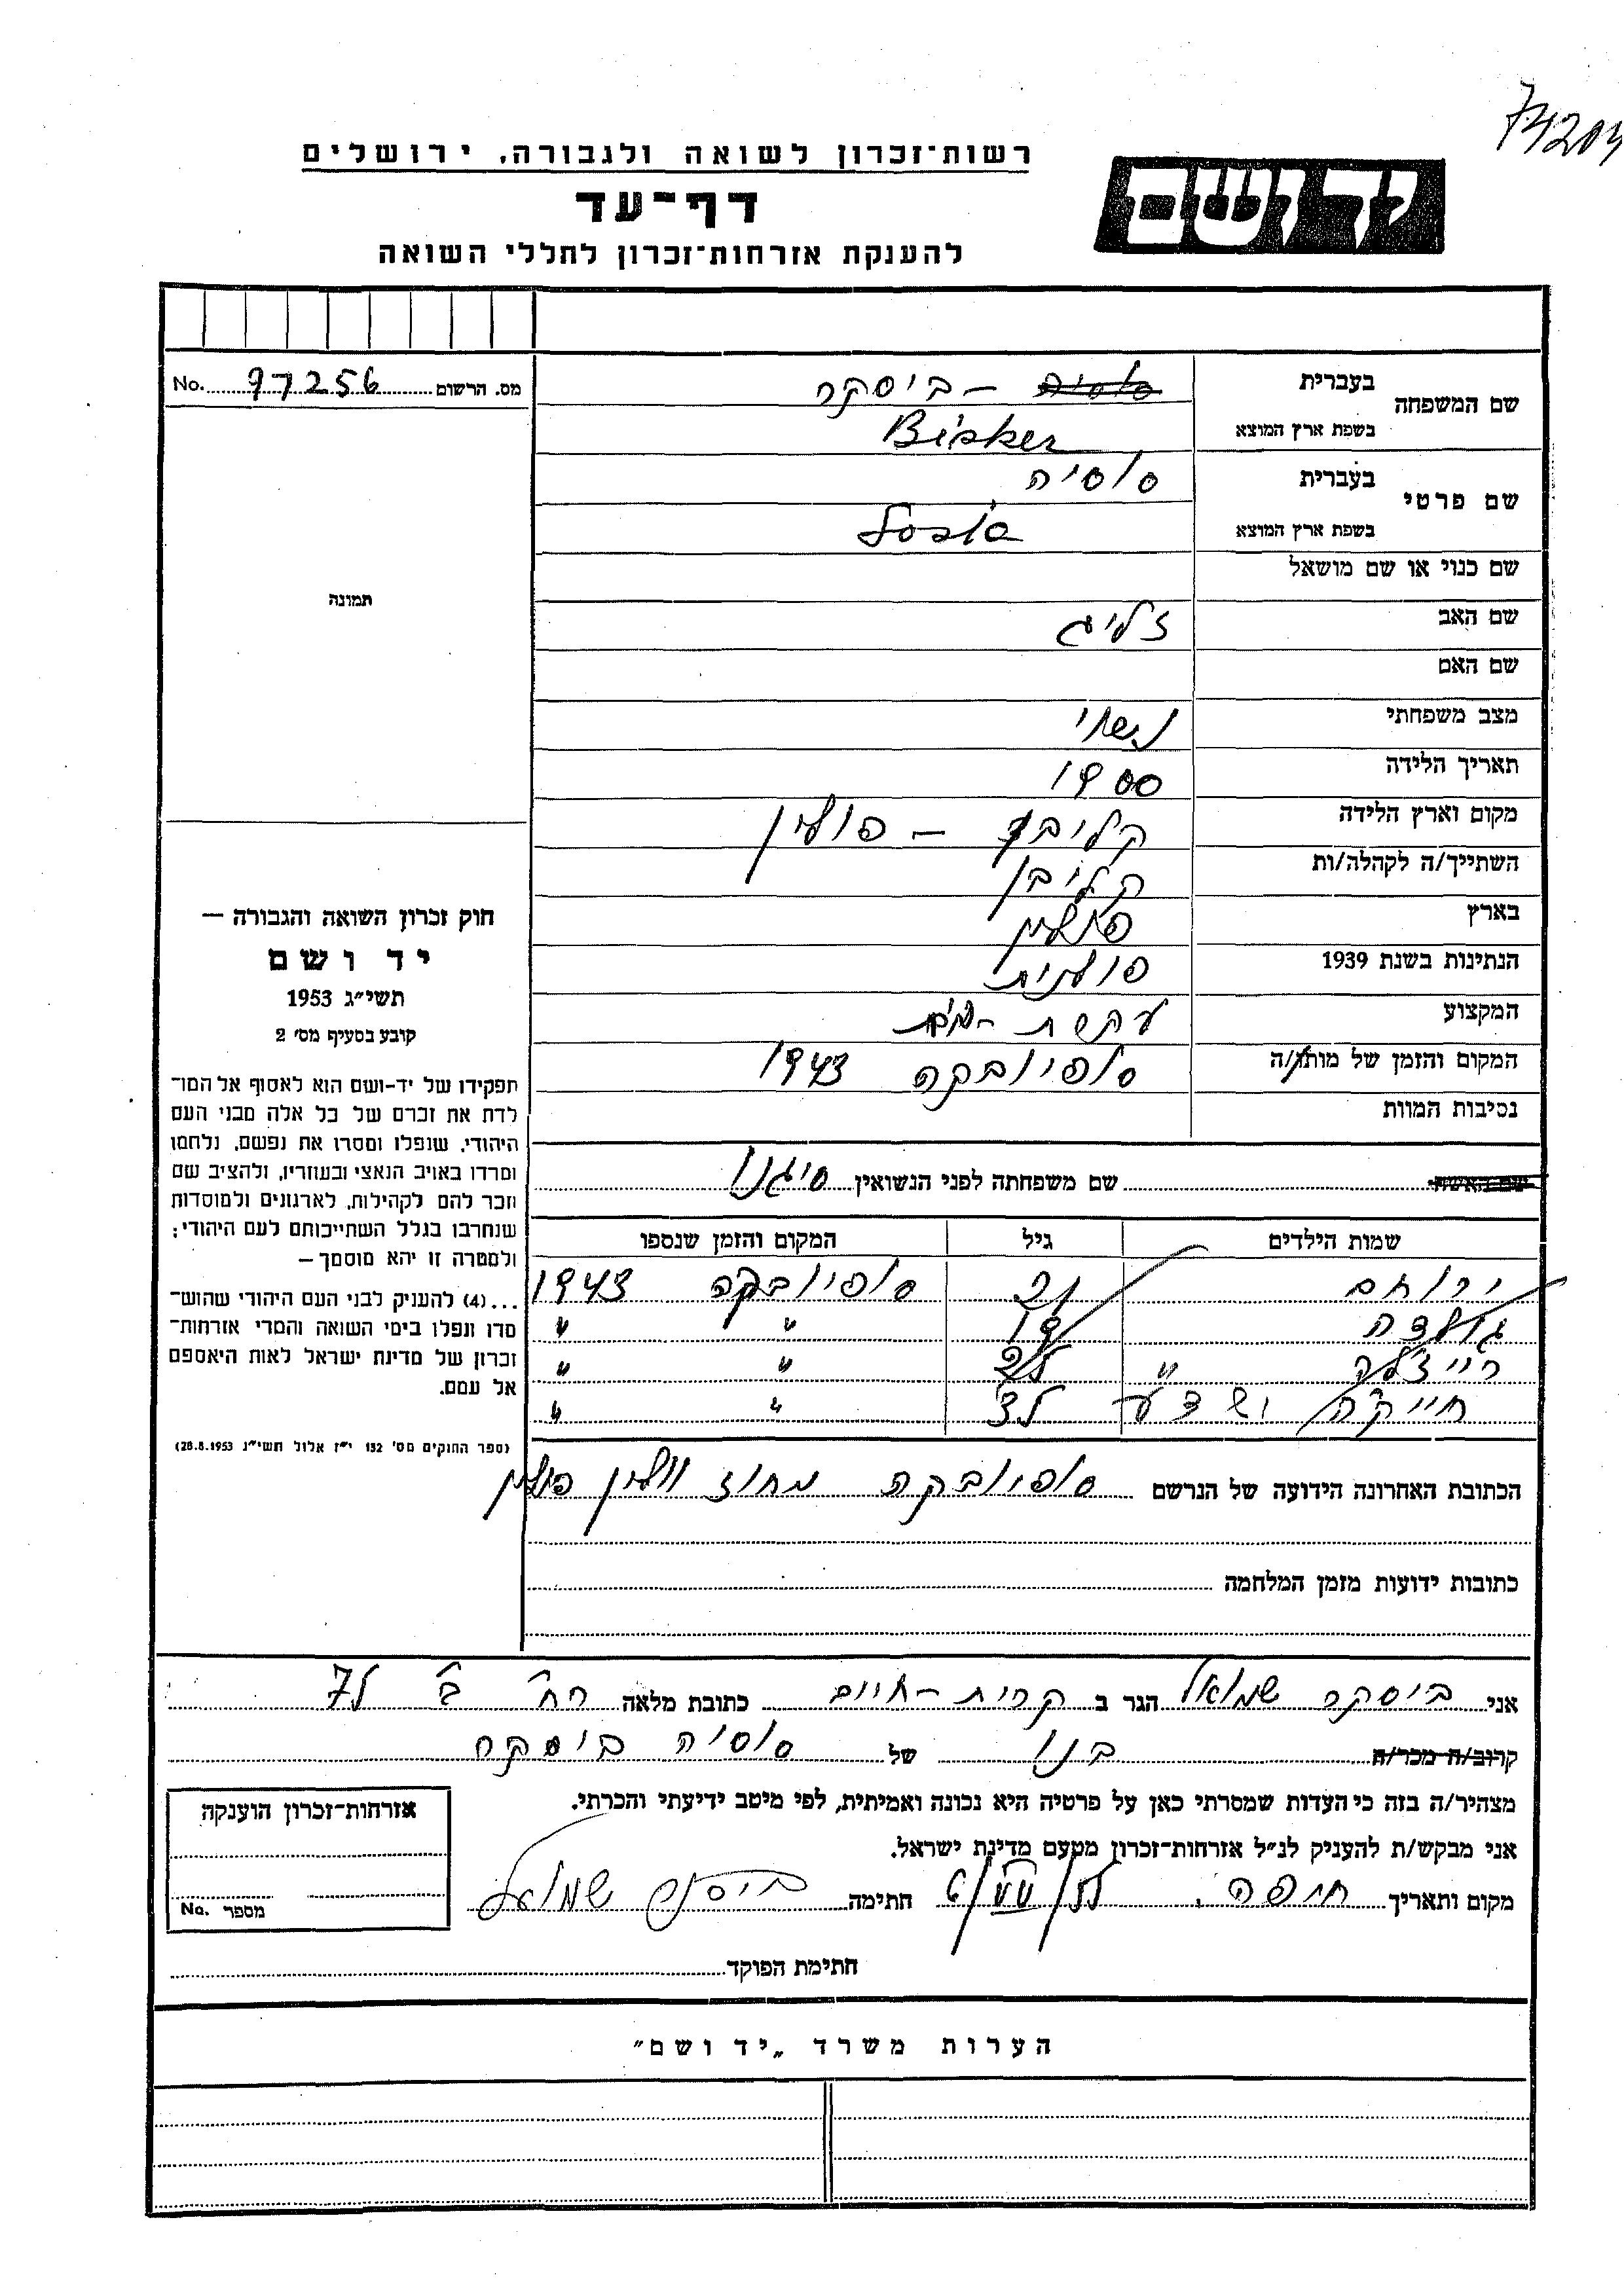 רשות־זכרון לשואה ולגבורה, ירושלים
דף־עד
להענקת אזרחות־זכרון לחללי השואה
יד ושם
מס. הרשום 97256 No.
שם המשפחה
בעברית
ביסקר
בשפת ארץ המוצא
Bisker
שם פרטי
בעברית סוסיה
בשפת ארץ המוצא Sosia
שם כנוי או שם מושאל
שם האב זליג
שם האם
מצב משפחתי נשוי
תאריך הלידה 1900
מקום וארץ הלידה קליבן – פולין
השתייך/ה לקהלה/ות קליבן
בארץ פולין
הנתינות בשנת 1939 פולנית
המקצוע עקשת-בית
המקום והזמן של מותו/ה סופיובקה 1943
נסיבות המוות
שם האשה שם משפחתה לפני הנשואין
שמות הילדים גיל המקום והזמן שנספו
ירוחם סופיובקה 1943
גולדה 19 " "
רייזלה " " "
חייקה " "
הכתובת האחרונה הידועה של הנרשם סופיובקה מחוז וולין פולין
כתובות ידועות מזמן המלחמה
אני ביסקר שמואל הגר ב קרית-חיים כתובת מלאה רח' ב'
קרוב/ה מכר/ה בנו של סוסיה ביסקר
מצהיר/ה בזה כי העדות שמסרתי כאן על פרטיה היא נכונה ואמיתית, לפי מיטב ידיעתי והכרתי.
אני מבקש/ת להעניק לנ״ל אזרחות־זכרון מטעם מדינת ישראל.
מקום ותאריך חיפה, חתימה ביסקר שמואל
חתימת הפוקד
תמונה
חוק זכרון השואה והגבורה –
יד ושם
תשי״ג 1953
קובע בסעיף מס׳ 2
תפקידו של יד-ושם הוא לאסוף אל המו־
לדת את זכרם של כל אלה מבני העם
היהודי, שנפלו ומסרו את נפשם, נלחמו
ומרדו באויב הנאצי ובעוזריו, ולהציב שם
וזכר להם לקהילות, לארגונים ולמוסדות
שנחרבו בגלל השתייכותם לעם היהודי;
ולמטרה זו יהא מוסמך –
...(4) להעניק לבני העם היהודי שהוש־
מדו ונפלו בימי השואה והמרי אזרחות־
זכרון של מדינת ישראל לאות היאספם
אל עמם.
(ספר החוקים מס׳ 132 י״ז אלול תשי״ג 28.8.1953)
אזרחות־זכרון הוענקה
מספר No.
הערות משרד „יד ושם״